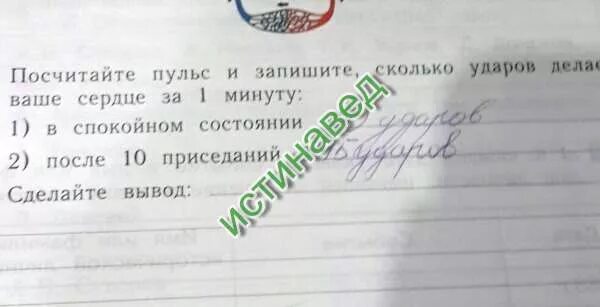 Посчитайте пульс и запишите, сколько ударов делае
ваше сердце за 1 минуту:
1) в спокойном состоянии ударов
2) после 10 приседаний ударов
Сделайте вывод:
истинавед